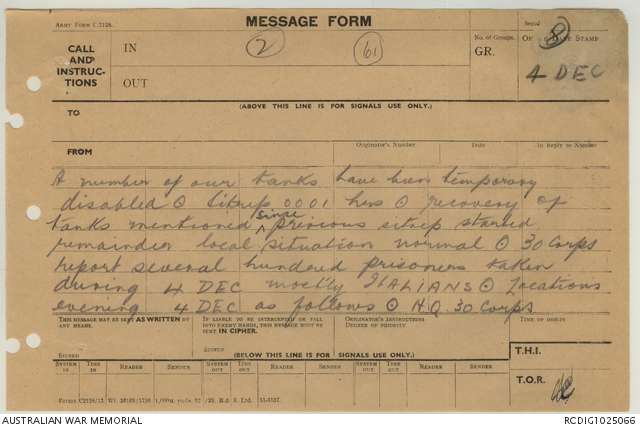 ARMY FORM C.2128.
MESSAGE FORM
Serial
CALL
AND
INSTRUC-
TIONS
IN
2
61
No. of Groups.
GR.
8
OFFICE DATE STAMP
4 DEC
OUT
(ABOVE THIS LINE IS FOR SIGNALS USE ONLY.)
TO
FROM
Originator's Number
Date
In Reply to Number
A number of our tanks have been temporary
disabled ⊙ Sitrep 0001 hrs ⊙ recovery of
tanks mentioned since previous sitrep started
remainder local situation normal ⊙ 30 Corps
report several hundred prisoners taken
during 4 DEC mostly ITALIANS ⊙ Locations
evening 4 DEC as follows ⊙ HQ 30 Corps
THIS MESSAGE MAY BE SENT AS WRITTEN BY
ANY MEANS.
IF LIABLE TO BE INTERCEPTED OR FALL
INTO ENEMY HANDS, THIS MESSAGE MUST BE
SENT IN CIPHER.
ORIGINATOR'S INSTRUCTIONS
DEGREE OF PRIORITY
TIME OF ORIGIN
SIGNED
SIGNED
(BELOW THIS LINE IS FOR SIGNALS USE ONLY.)
T.H.I.
SYSTEM IN
TIME IN
READER
SENDER
SYSTEM OUT
TIME OUT
READER
SENDER
SYSTEM OUT
TIME OUT
READER
SENDER
T.O.R.
AUSTRALIAN WAR MEMORIAL
RCDIG1025066